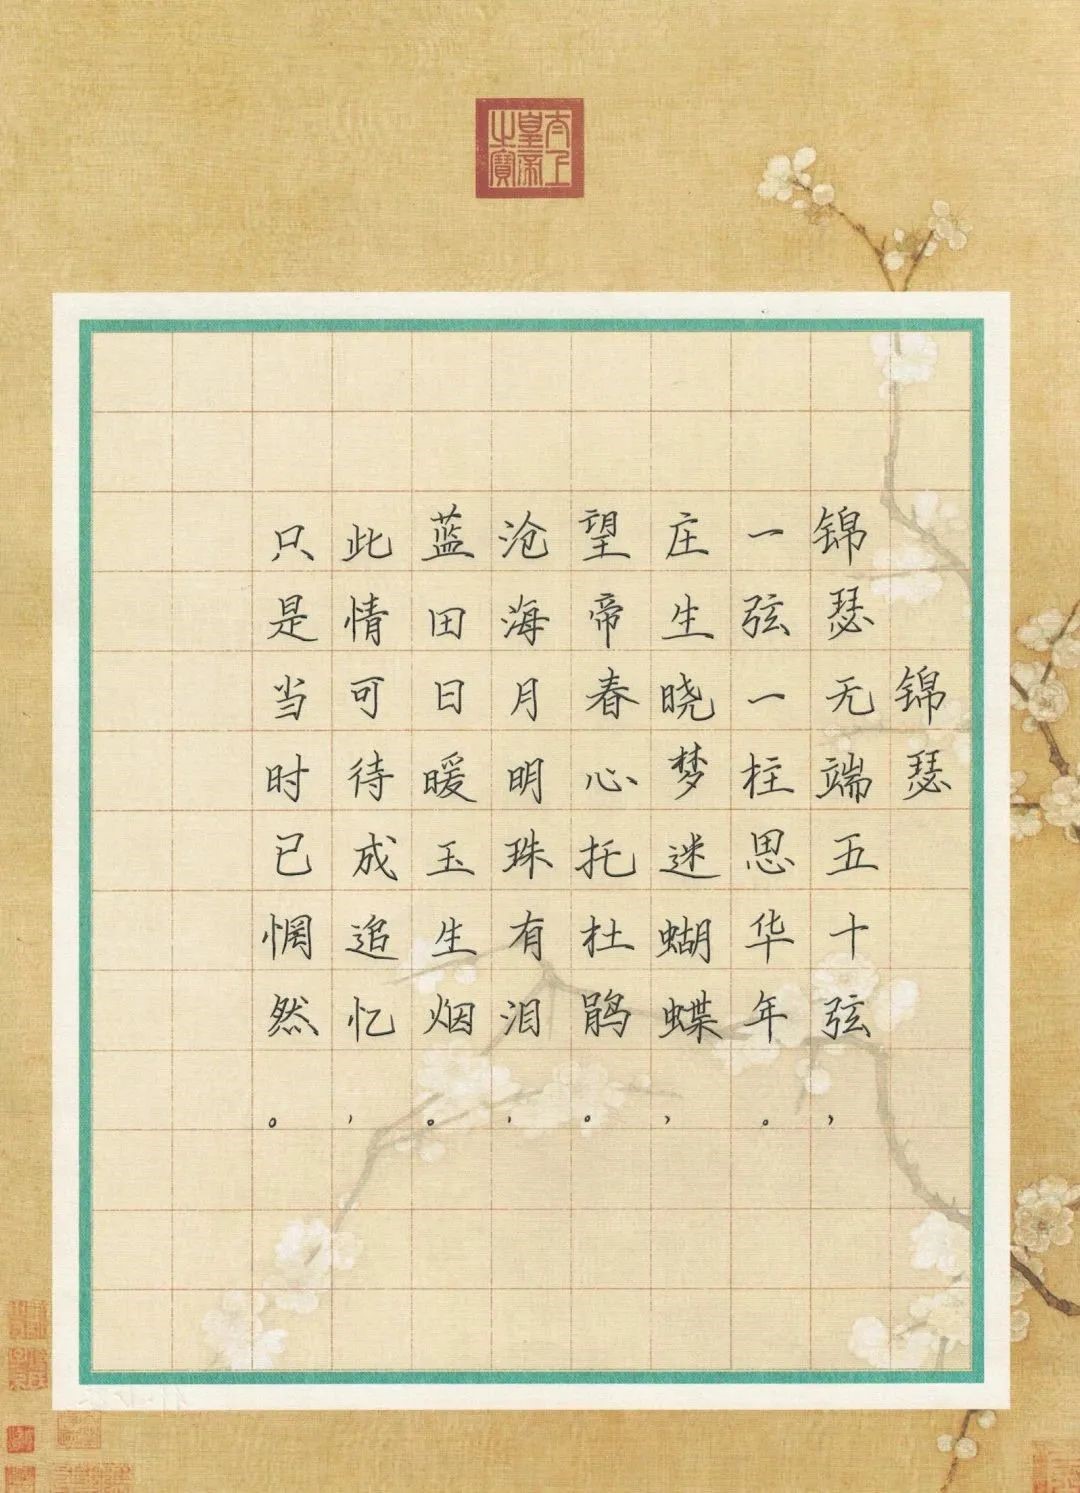 太上
皇帝
之寶
锦瑟
锦瑟无端五十弦，
一弦一柱思华年。
庄生晓梦迷蝴蝶，
望帝春心托杜鹃。
沧海月明珠有泪，
蓝田日暖玉生烟。
此情可待成追忆，
只是当时已惘然。